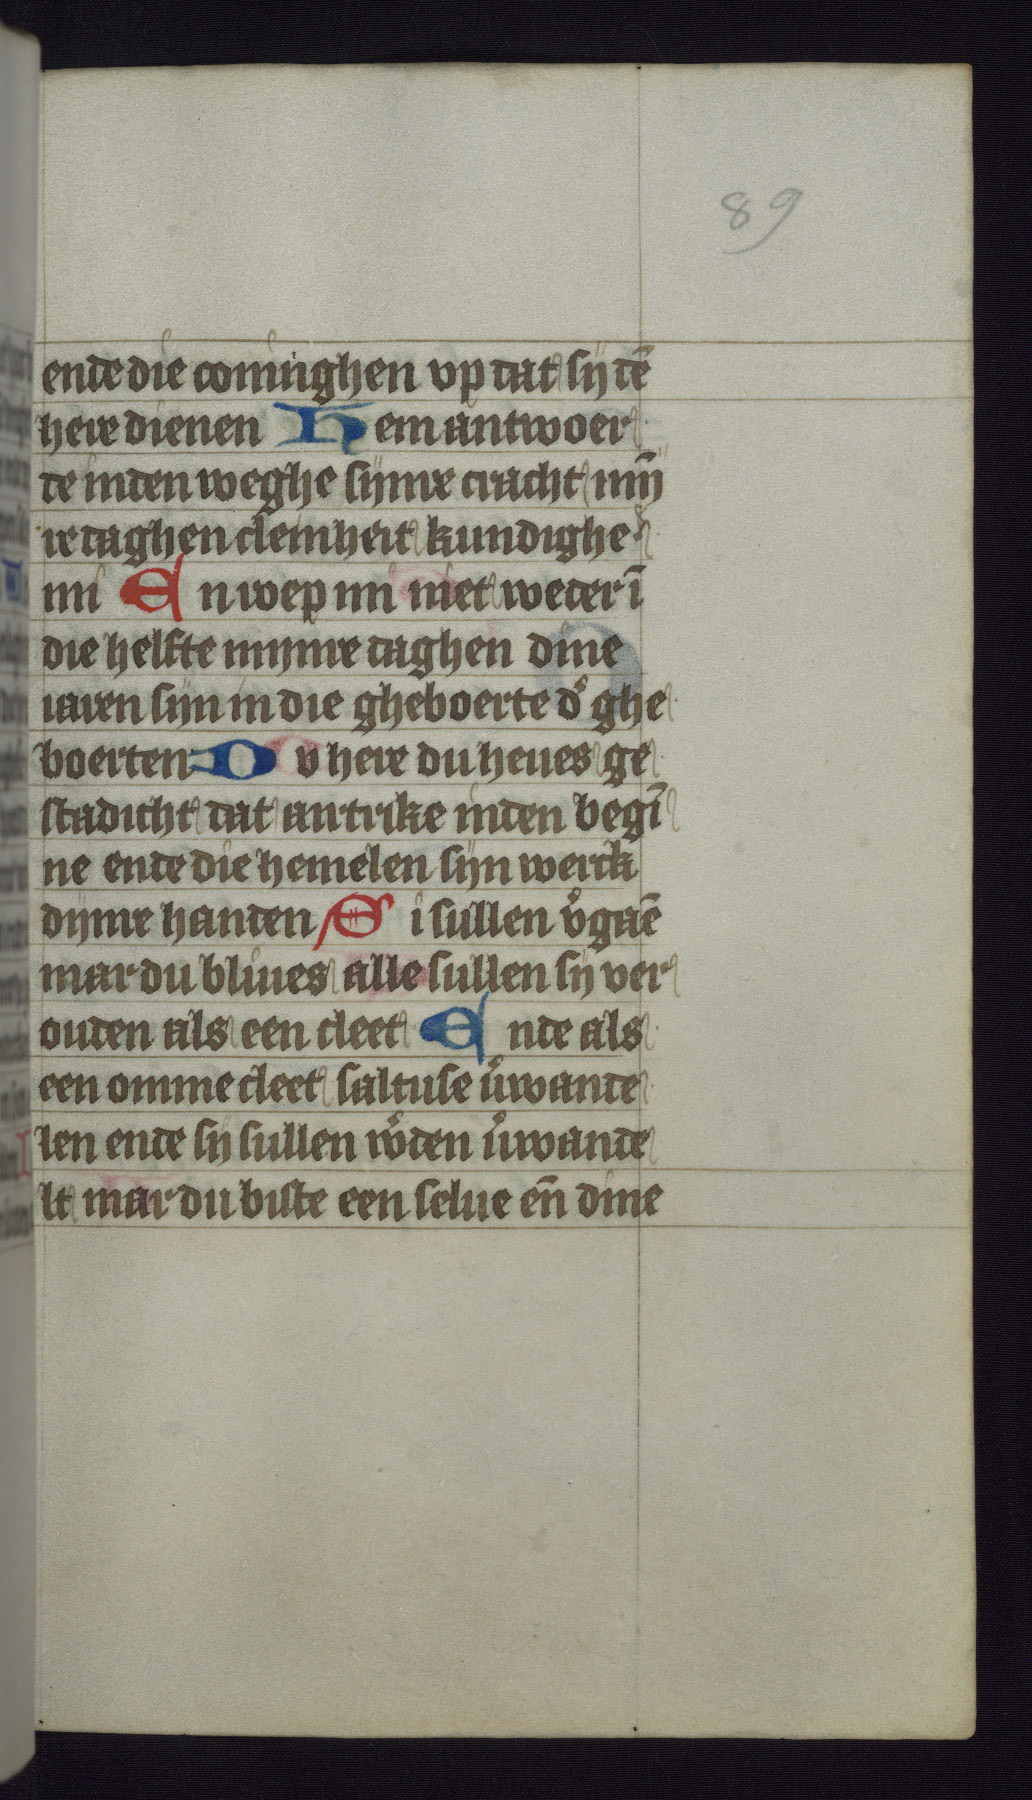 89
ende die coninghen vp dat sij dē
here dienen Hem antwoer
de inden weghe sijnre cracht mijn
re daghen cleinheit kundighe
mi En wep mi niet weder ī
die helfte mijnre daghen dine
iaren sijn in die gheboerte d' ghe
boerten Du here du heues ge
stadicht dat artrike inden begī
ne ende die hemelen sijn werck
dijnre handen Si sullen v'gaē
mar du bliues alle sullen sij ver
ouden als een cleet Ende als
een omme cleet saltuse v'wande
len ende sij sullen w'den v'wande
lt mar du biste een selue eñ dine